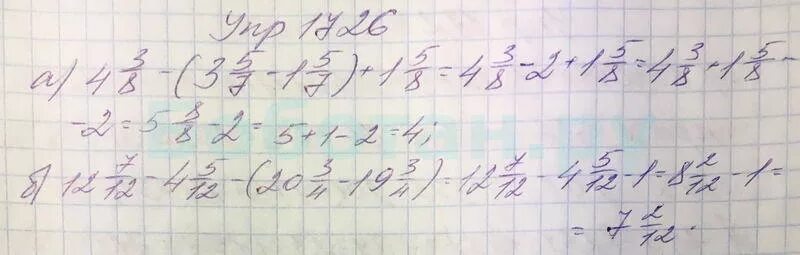 Упр 1726
а) 4 3/8 - (3 5/7 - 1 5/7) + 1 5/8 = 4 3/8 - 2 + 1 5/8 = 4 3/8 + 1 5/8 -
- 2 = 5 8/8 - 2 = 5 + 1 - 2 = 4;
б) 12 7/12 - 4 5/12 - (20 3/4 - 19 3/4) = 12 7/12 - 4 5/12 - 1 = 8 2/12 - 1 =
= 7 2/12.